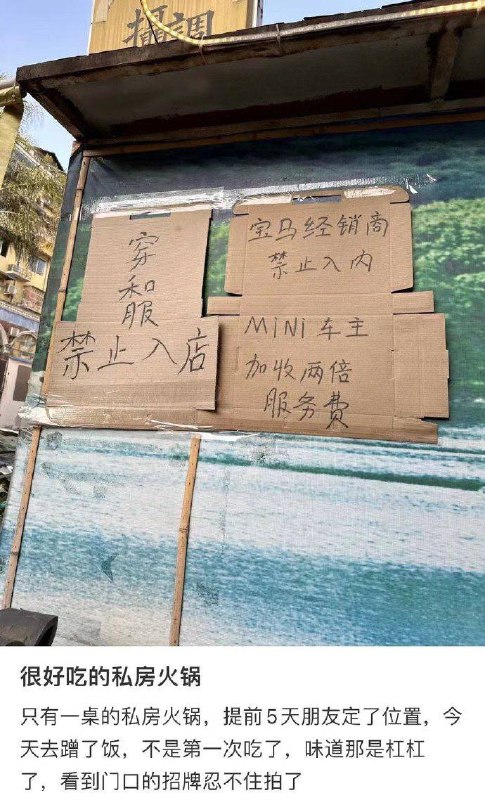 攝調
穿
和
服
禁止入店
宝马经销商
禁止入内
MiNi车主
加收两倍
服务费
很好吃的私房火锅
只有一桌的私房火锅，提前5天朋友定了位置，今
天去蹭了饭，不是第一次吃了，味道那是杠杠
了，看到门口的招牌忍不住拍了